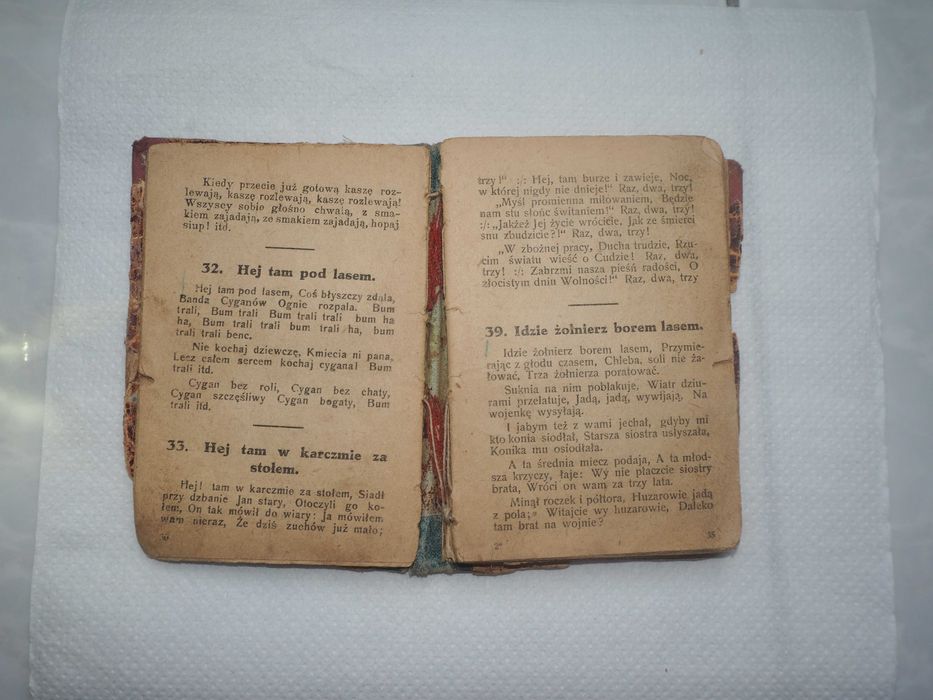 Kiedy przecie już gotową kaszę roz-
lewają, kaszę rozlewają, kaszę rozlewają!
Wszyscy sobie głośno chwalą, z sma-
kiem zajadają, ze smakiem zajadają, hopaj
siup! itd.
32. Hej tam pod lasem.
Hej tam pod lasem, Coś błyszczy zdala,
Banda Cyganów Ognie rozpala. Bum
trali, Bum trali Bum trali trali bum ha
ha, Bum trali trali bum trali ha, bum
trali trali benc.
Nie kochaj dziewczę, Kmiecia ni pana,
Lecz całem sercem kochaj cygana! Bum
trali itd.
Cygan bez roli, Cygan bez chaty,
Cygan szczęśliwy Cygan bogaty, Bum
trali itd.
33. Hej tam w karczmie za
stołem.
Hej! tam w karczmie za stołem, Siadł
przy dzbanie Jan stary, Otoczyli go ko-
łem, On tak mówił do wiary: Ja mówiłem
wam nieraz, Że dziś zuchów już mało;
30
trzy!" :/: Hej, tam burze i zawieje, Noc,
w której nigdy nie dnieje!" Raz, dwa, trzy!
„Myśl promienna miłowaniem, Będzie
nam stu słońc świtaniem!" Raz, dwa, trzy!
:/: „Jakżeż Jej życie wrócicie, Jak ze śmierci
snu zbudzicie?!" Raz, dwa, trzy!
„W zbożnej pracy, Ducha trudzie, Rzu-
cim światu wieść o Cudzie! Raz, dwa,
trzy! :/: Zabrzmi nasza pieśń radości, O
złocistym dniu Wolności!" Raz, dwa, trzy
39. Idzie żołnierz borem lasem.
Idzie żołnierz borem lasem, Przymie-
rając z głodu czasem, Chleba, soli nie ża-
łować, Trza żołnierza poratować.
Suknia na nim poblakuje, Wiatr dziu-
rami przelatuje, Jadą, jadą, wywijają, Na
wojenkę wysyłają.
I jabym też z wami jechał, gdyby mi
kto konia siodłał, Starsza siostra usłyszała,
Konika mu osiodłała.
A ta średnia miecz podaja, A ta młod-
sza krzyczy, łaje: Wy nie płaczcie siostry
brata, Wróci on wam za trzy lata.
Minął roczek i półtora, Huzarowie jadą
z pola; Witajcie wy huzarowie, Daleko
tam brat na wojnie?
2*
35